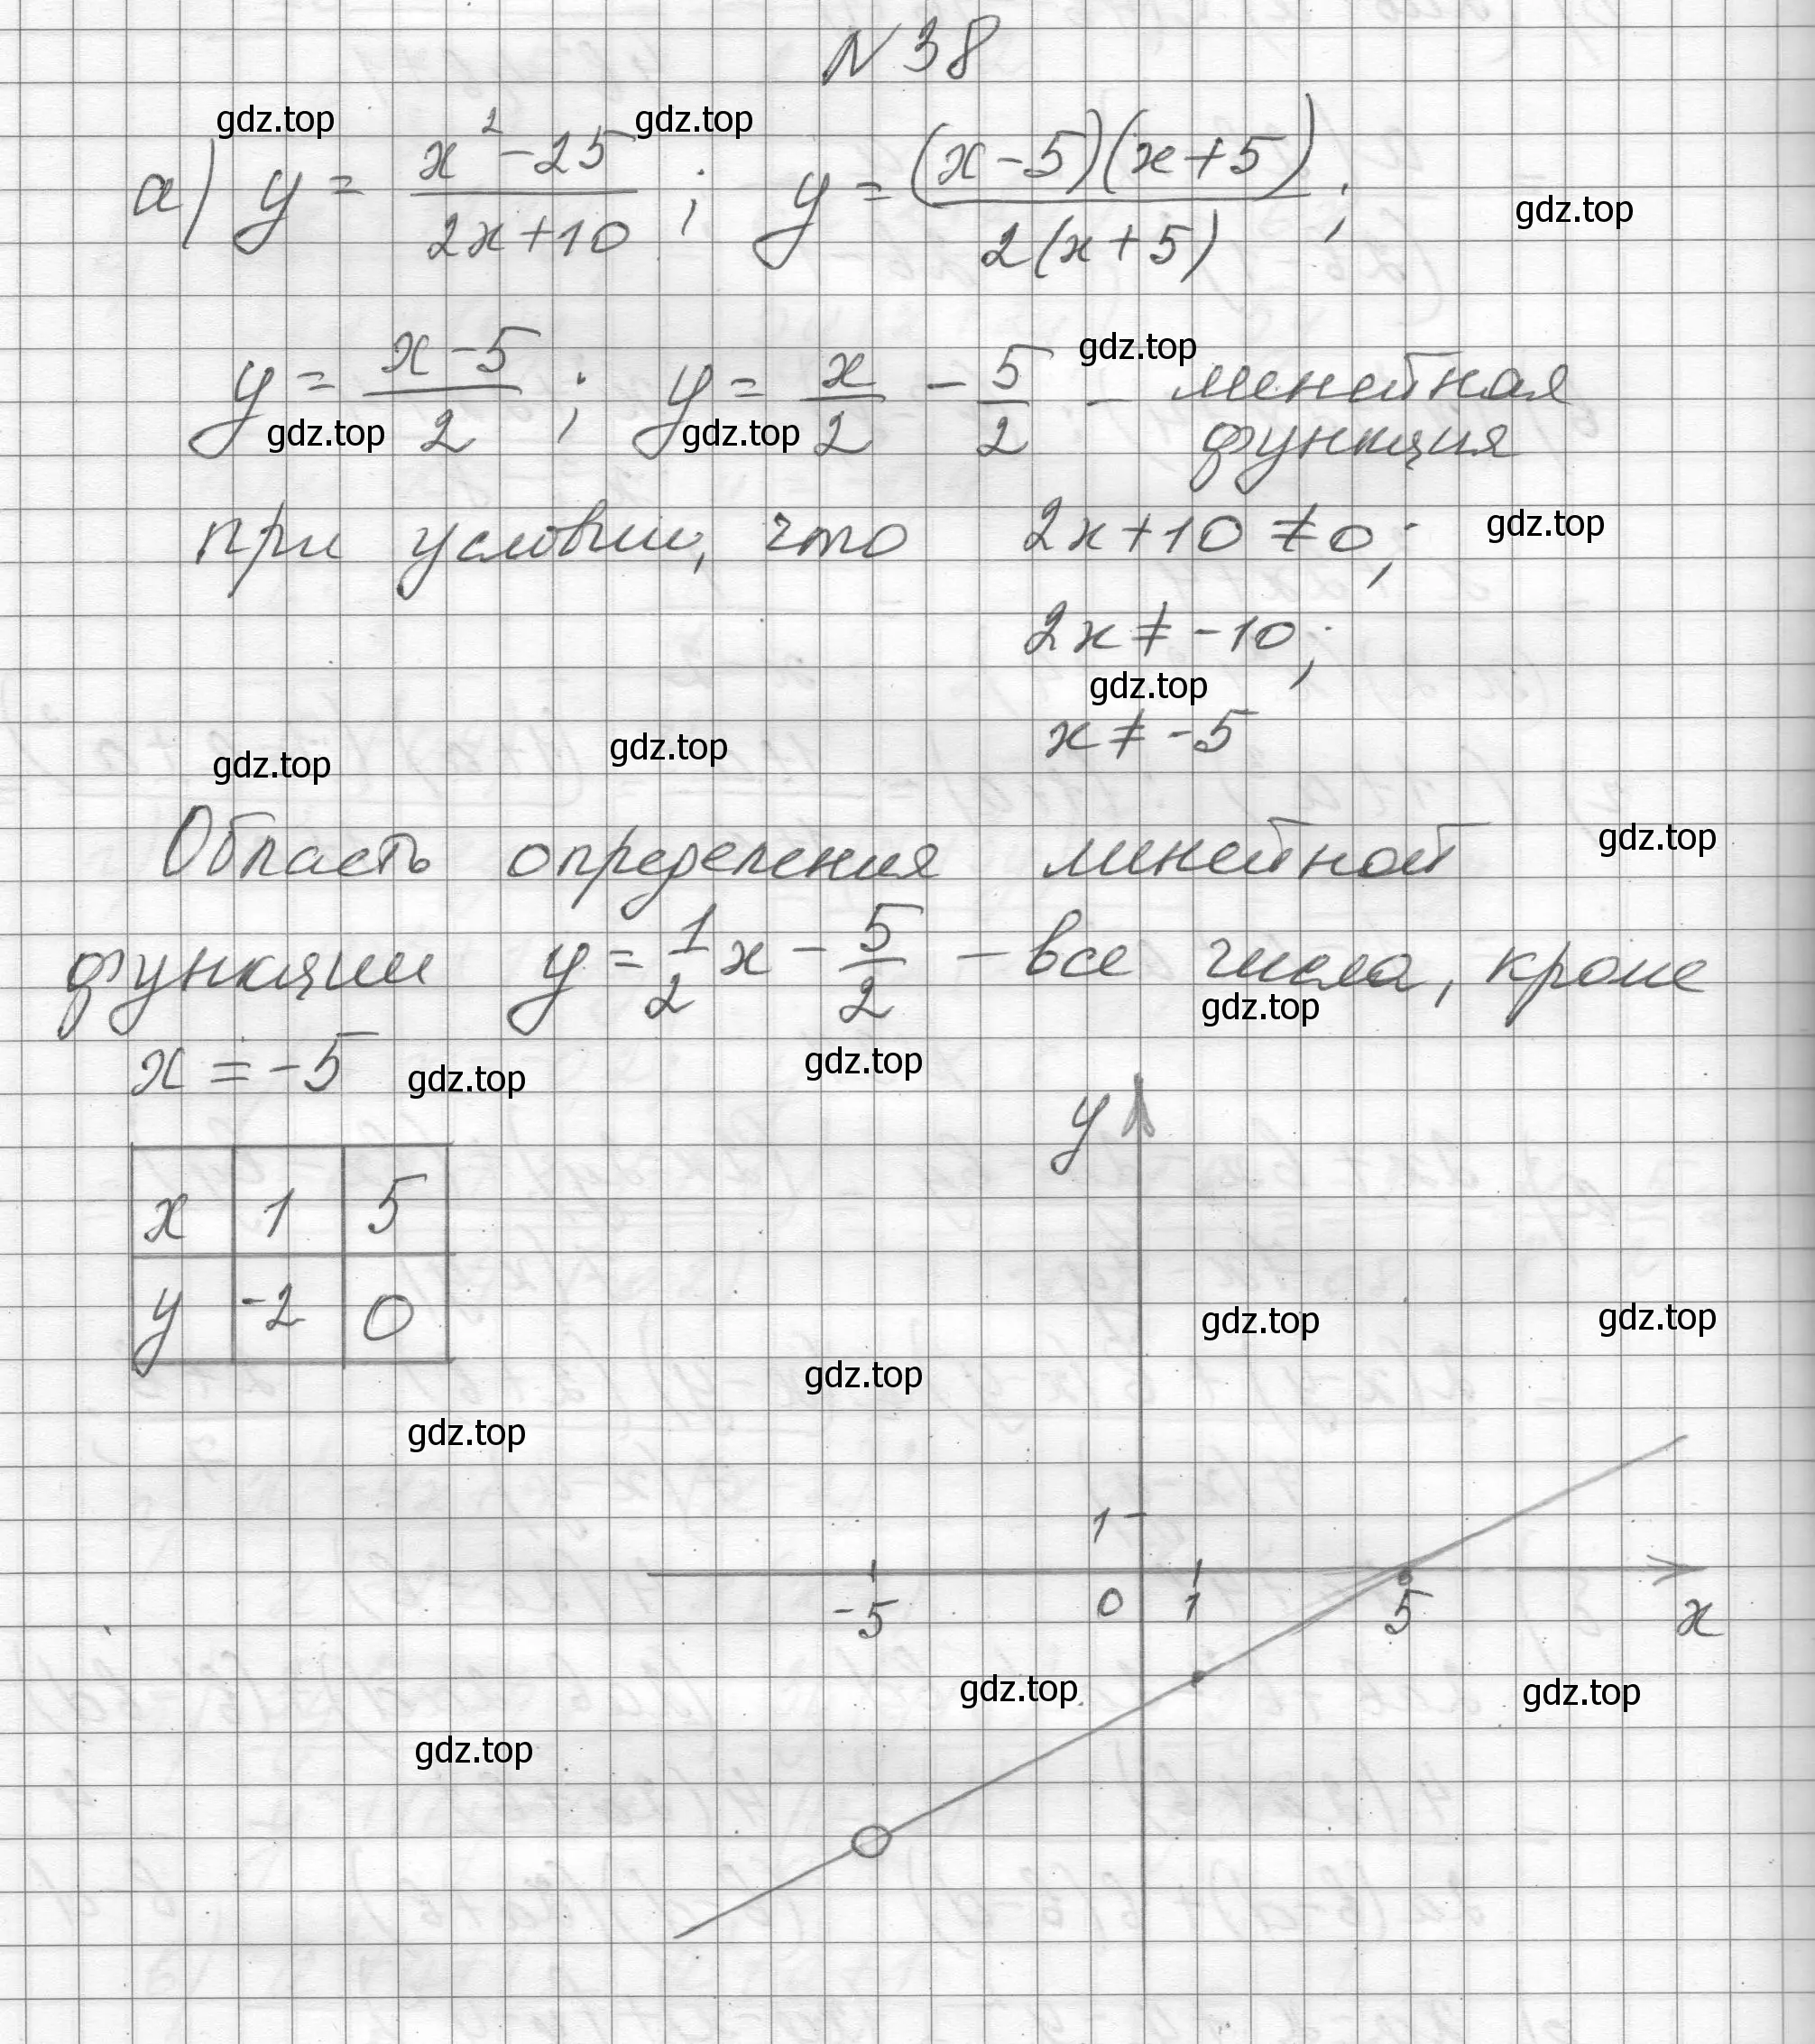 N 38
gdz.top gdz.top
а) y = (x² - 25)/(2x + 10) ; y = ((x - 5)(x + 5))/(2(x + 5)) ;
gdz.top
gdz.top
y = (x - 5)/2 ; y = x/2 - 5/2 - линейная
функция
gdz.top gdz.top
при условии, что 2x + 10 ≠ 0;
gdz.top
2x ≠ -10;
gdz.top
x ≠ -5
gdz.top gdz.top
Область определения линейной
gdz.top
функции y = 1/2 x - 5/2 - все числа, кроме
gdz.top
x = -5
gdz.top gdz.top
y
x 1 5
y -2 0
gdz.top gdz.top
gdz.top
gdz.top
1
-5 0 1 5 x
gdz.top gdz.top
gdz.top